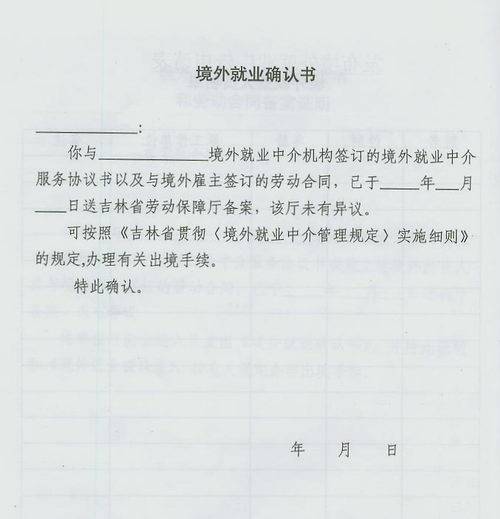 境外就业确认书
__________：
你与__________境外就业中介机构签订的境外就业中介
服务协议书以及与境外雇主签订的劳动合同，已于____年__月
___日送吉林省劳动保障厅备案，该厅未有异议。
可按照《吉林省贯彻〈境外就业中介管理规定〉实施细则》
的规定,办理有关出境手续。
特此确认。
年 月 日